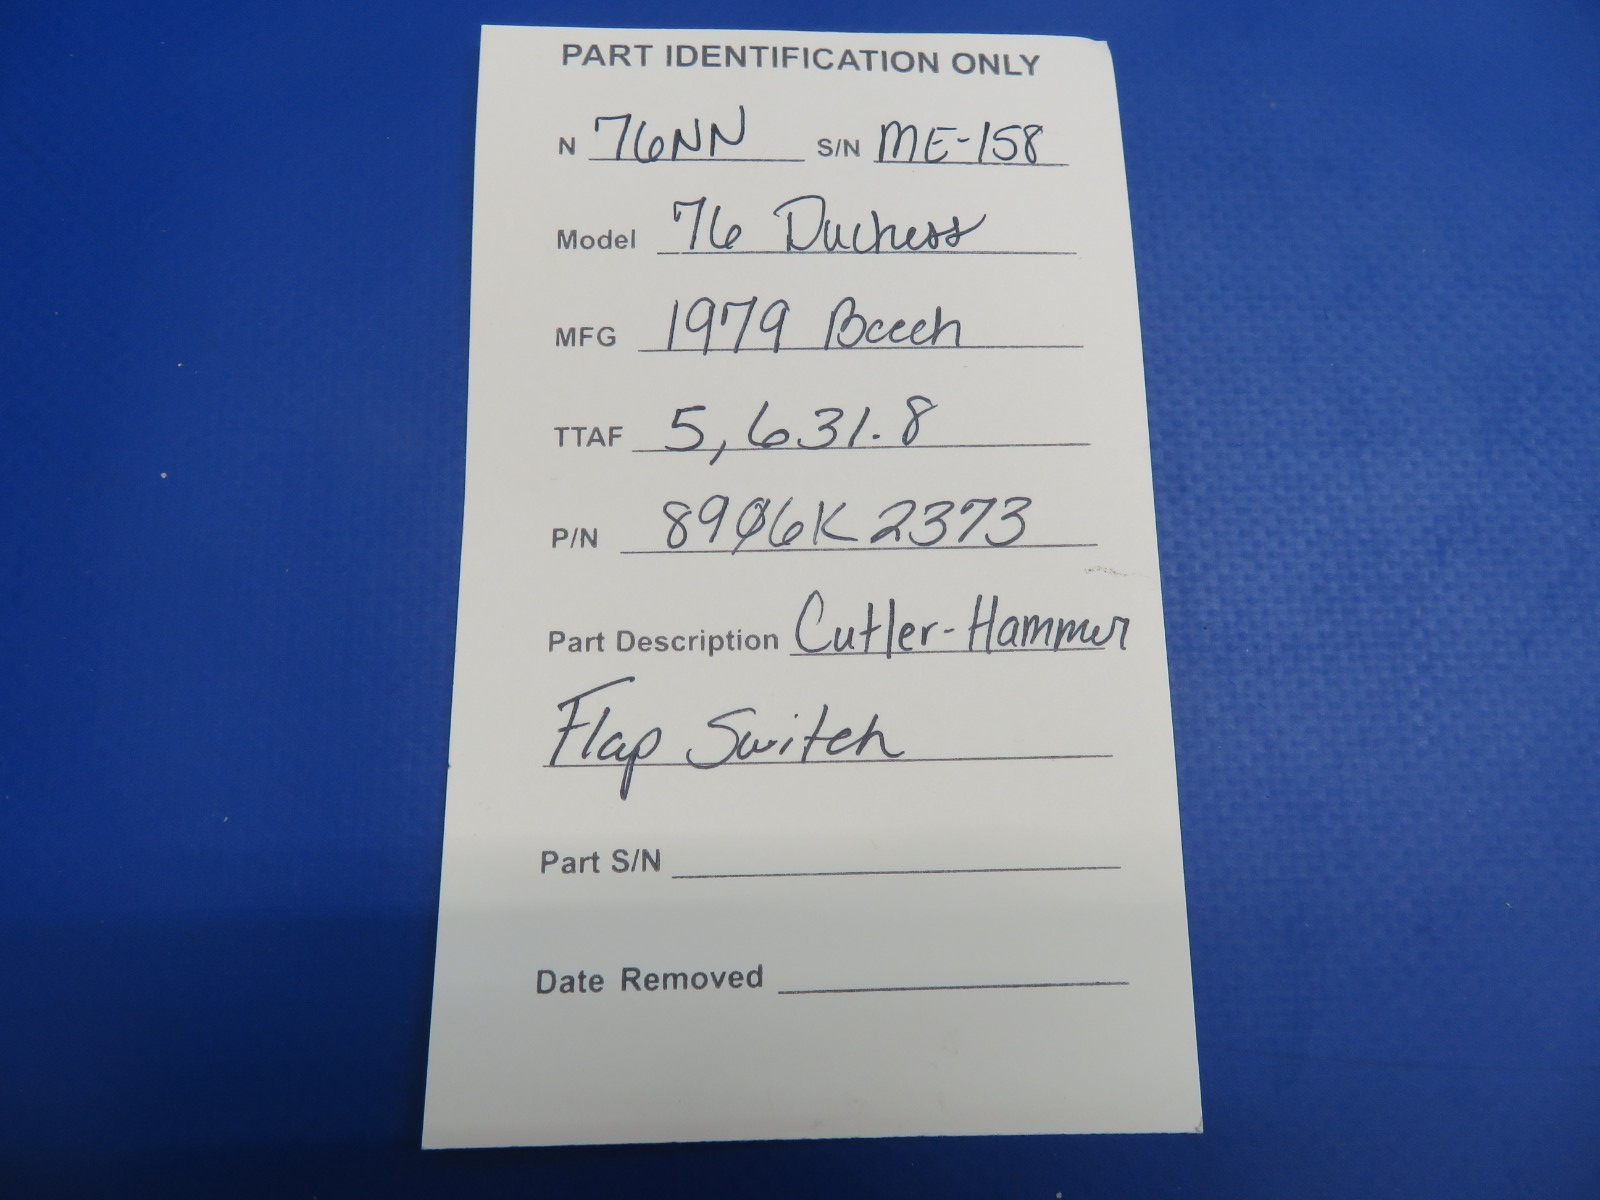 PART IDENTIFICATION ONLY
N 76NN S/N ME-158
Model 76 Duchess
MFG 1979 Beech
TTAF 5,631.8
P/N 8906K2373
Part Description Cutler-Hammer
Flap Switch
Part S/N
Date Removed